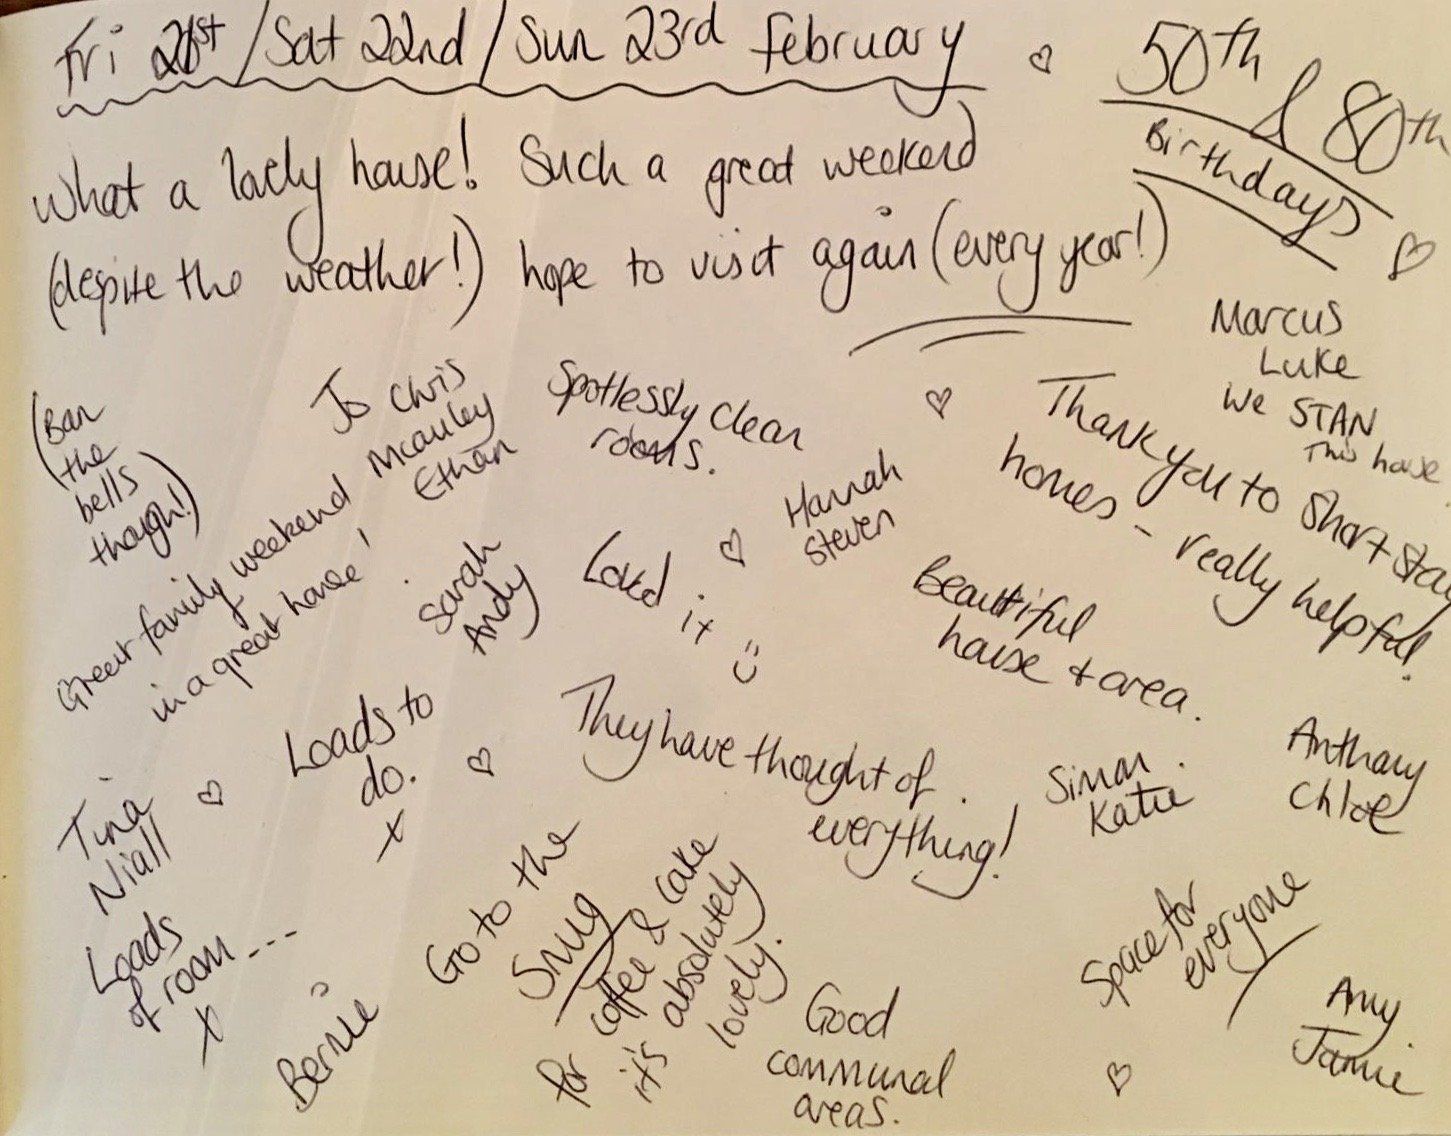 Fri 21st / Sat 22nd / Sun 23rd February
50th & 80th
Birthdays
What a lovely house! Such a great weekend
(despite the weather!) hope to visit again (every year!)
Marcus
Luke
We STAN
This house
(Ban
the
bells
though!)
Jo Chris
Mcauley
Ethan
Spotlessly clean
rooms.
Thank you to Short Stay
homes - really helpful!
Hannah
Steven
Great family weekend
in a great house!
Sarah
Andy
Loved
it
Beautiful
house + area.
Loads to
do.
x
They have thought of
everything!
Simon
Katie
Anthony
Chloe
Tina
Niall
Loads
of room ---
x
Bernie
Go to the
Snug
for coffee & cake
it's absolutely
lovely.
Good
communal
areas.
Space for
everyone
Amy
Jamie